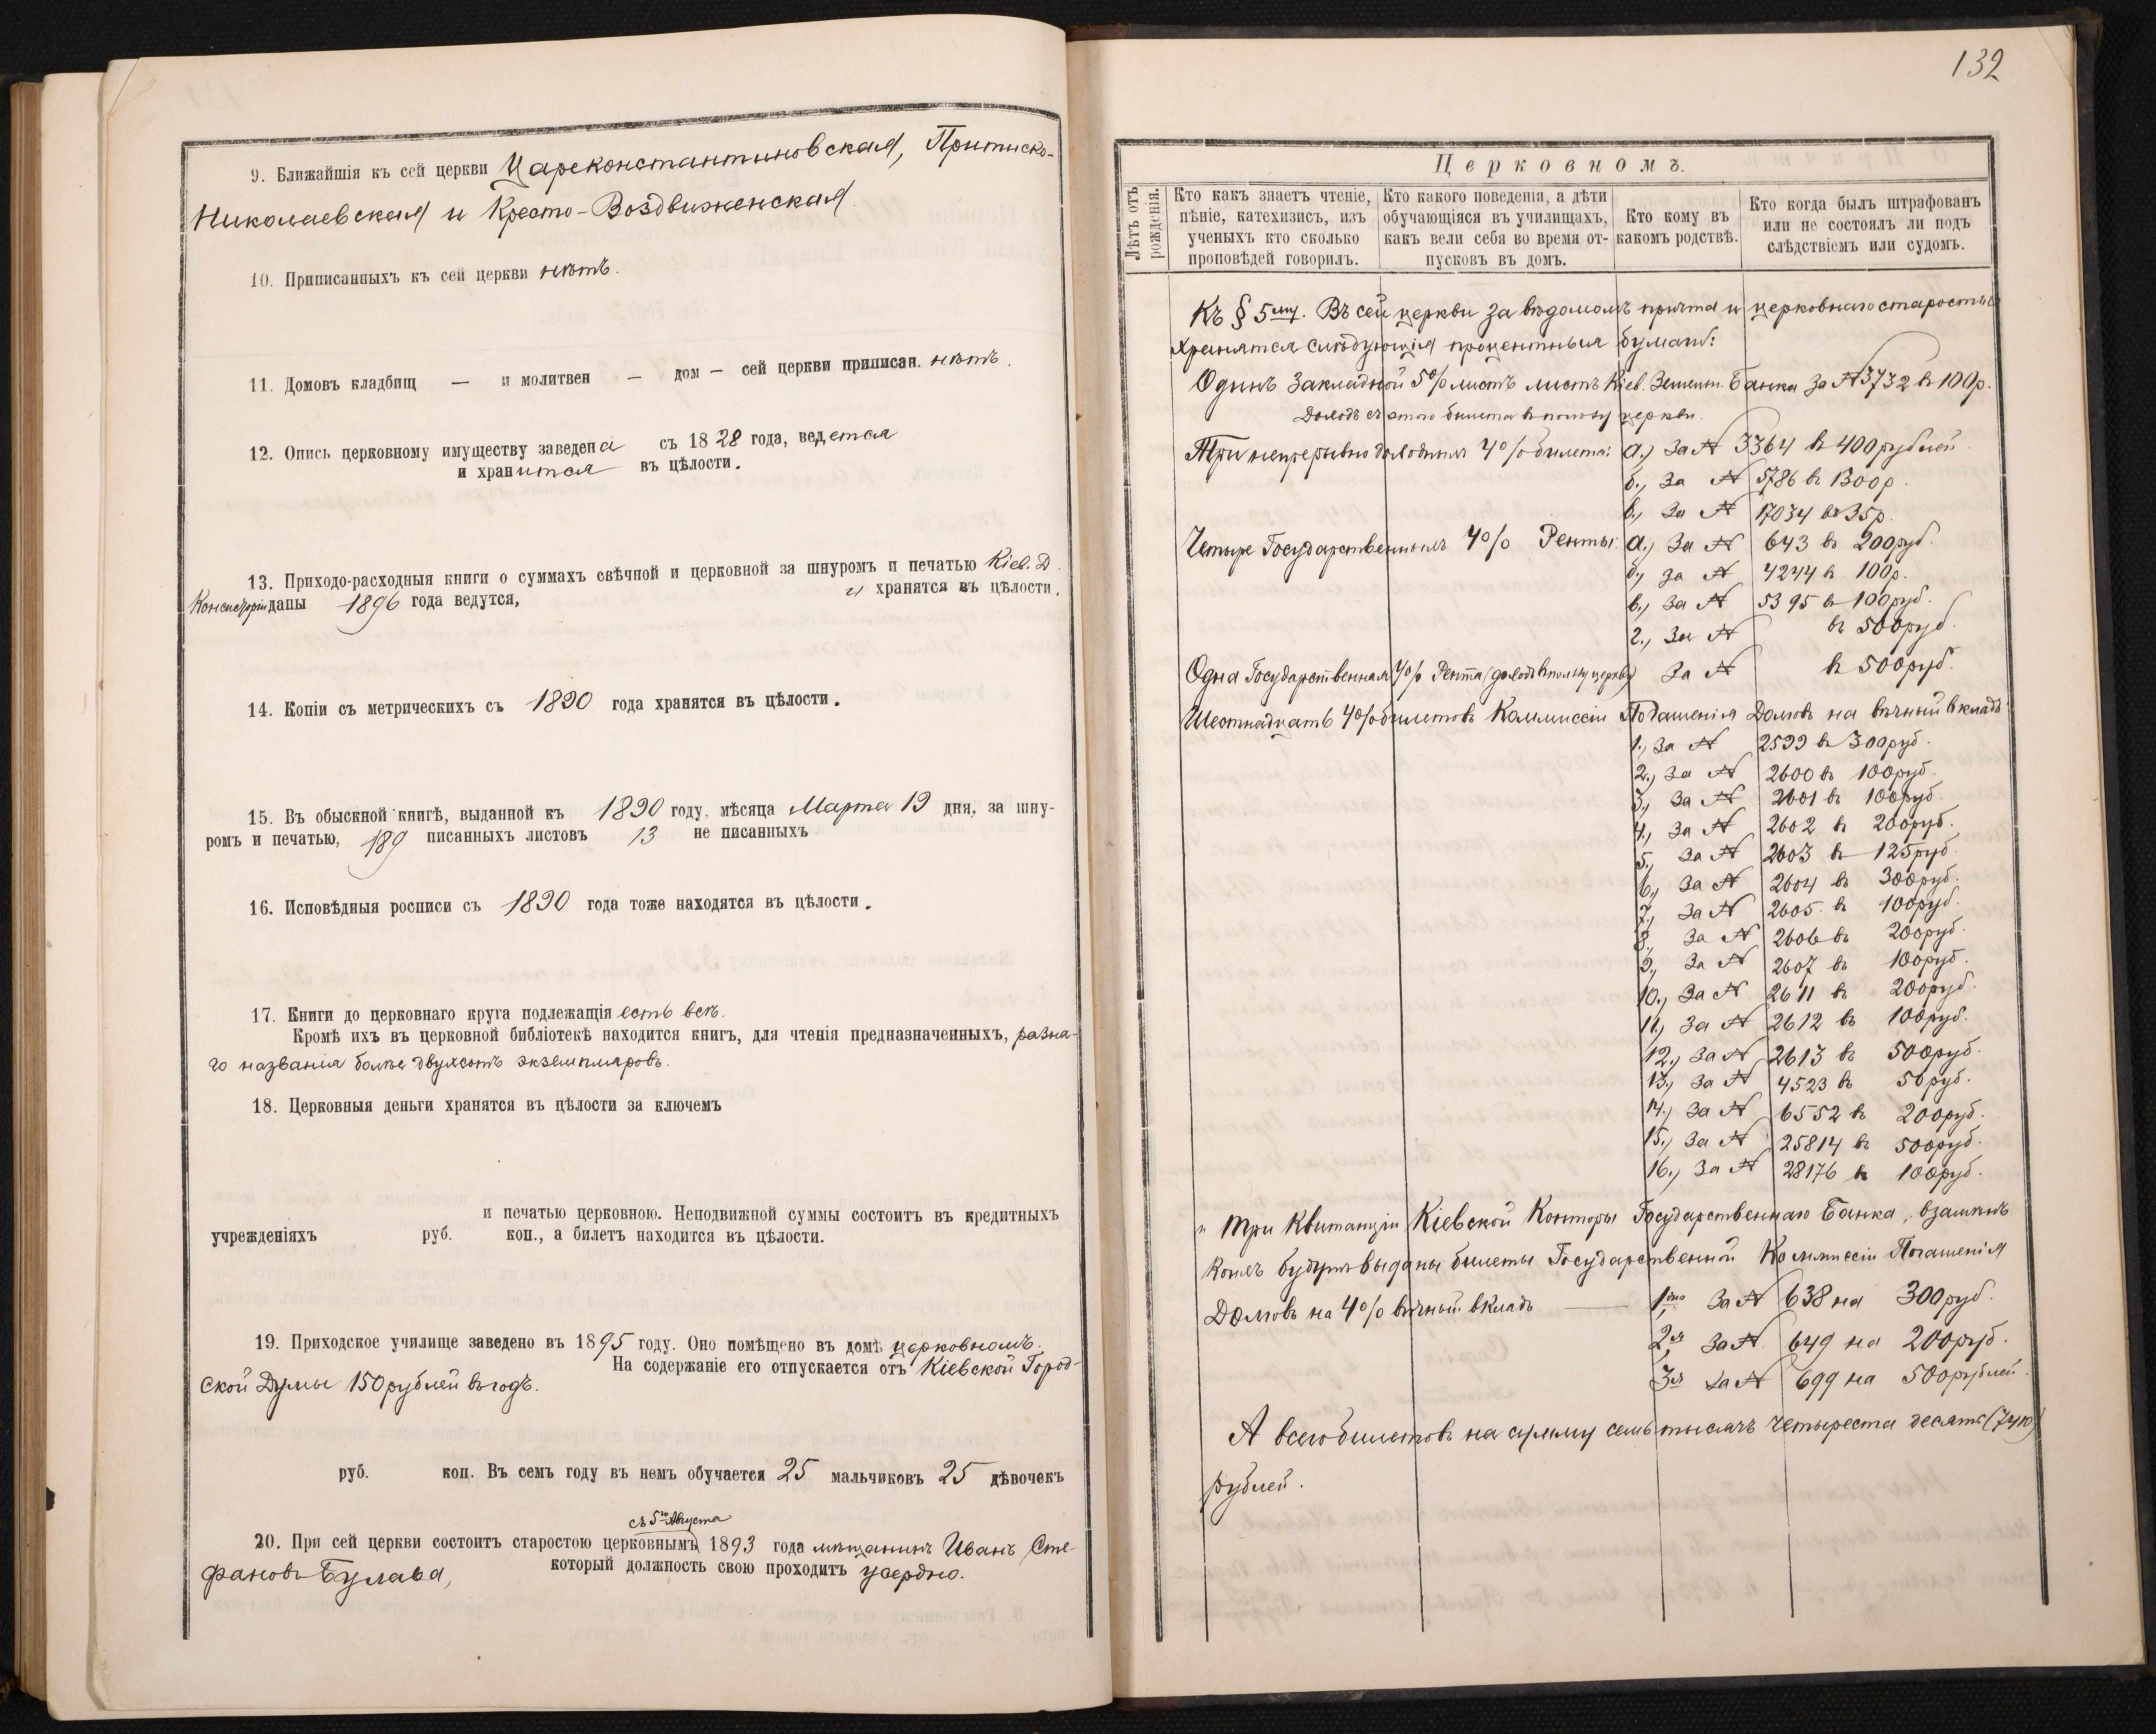 9. Ближайшія къ сей церкви Цареконстантиновская, Притиско-
Николаевская и Кресто-Воздвиженская.
10. Приписанныхъ къ сей церкви нѣтъ.
11. Домовъ кладбищ — и молитвен — дом — сей церкви приписан. нѣтъ.
12. Опись церковному имуществу заведена съ 1828 года, ведется
и хранится въ цѣлости.
13. Приходо-расходныя книги о суммахъ свѣчной и церковной за шнуромъ и печатью Кіев. Д.
Консисторіи даны 1896 года ведутся, и хранятся въ цѣлости.
14. Копіи съ метрическихъ съ 1890 года хранятся въ цѣлости.
15. Въ обыскной книгѣ, выданной къ 1890 году, мѣсяца Марта 19 дня, за шну-
ромъ и печатью, 189 писанныхъ листовъ 13 не писанныхъ
16. Исповѣдныя росписи съ 1890 года тоже находятся въ цѣлости.
17. Книги до церковнаго круга подлежащія есть всѣ.
Кромѣ ихъ въ церковной библіотекѣ находится книгъ, для чтенія предназначенныхъ, разна-
го названія болѣе двухсотъ экземпляровъ.
18. Церковныя деньги хранятся въ цѣлости за ключемъ
и печатью церковною. Неподвижной суммы состоитъ въ кредитныхъ
учрежденіяхъ руб. коп., а билетъ находится въ цѣлости.
19. Приходское училище заведено въ 1895 году. Оно помѣщено въ домѣ церковномъ.
На содержаніе его отпускается отъ Кіевской Город-
ской Думы 150 рублей въ годъ.
руб. коп. Въ семъ году въ немъ обучается 25 мальчиковъ 25 дѣвочекъ
съ 5го Августа
20. При сей церкви состоитъ старостою церковнымъ 1893 года мѣщанинъ Иванъ Сте-
фановъ Булава, который должность свою проходитъ усердно.
132
Церковномъ.
Лѣтъ отъ рожденія.
Кто какъ знаетъ чтеніе, пѣніе, катехизисъ, изъ ученыхъ кто сколько проповѣдей говорилъ.
Кто какого поведенія, а дѣти обучающіяся въ училищахъ, какъ вели себя во время отпусковъ въ домъ.
Кто кому въ какомъ родствѣ.
Кто когда былъ штрафованъ или не состоялъ ли подъ слѣдствіемъ или судомъ.
Къ § 5му. Въ сей церкви за вѣдомомъ причта и церковнаго старосты
хранятся слѣдующія процентныя бумаги:
Одинъ Закладной 5% листъ листъ Кіев. Земельн. Банка за № 3732 въ 100 р.
Доходъ съ этого билета въ пользу церкви.
Три непрерывно доходныхъ 4% билета: а.) за № 3364 въ 400 рублей
б., за № 5786 въ 1300 р.
в., за № 17034 въ 35 р.
Четыре Государственныхъ 4% Ренты: а.) за № 643 въ 200 руб.
б., за № 4244 въ 100 р.
в., за № 5395 въ 100 руб.
г., за № въ 500 руб.
Одна Государственная 4% Рента (доходъ въ пользу церкви) за № въ 500 руб.
Шестнадцать 4% билетовъ Коммиссіи Погашенія Долговъ на вѣчный вкладъ:
1., за № 2599 въ 300 руб.
2., за № 2600 въ 100 руб.
3., за № 2601 въ 100 руб.
4., за № 2602 въ 200 руб.
5., за № 2603 въ 125 руб.
6., за № 2604 въ 300 руб.
7., за № 2605 въ 100 руб.
8., за № 2606 въ 200 руб.
9., за № 2607 въ 100 руб.
10., за № 2611 въ 200 руб.
11., за № 2612 въ 100 руб.
12., за № 2613 въ 500 руб.
13., за № 4523 въ 50 руб.
14., за № 6552 въ 200 руб.
15., за № 25814 въ 500 руб.
16., за № 28176 въ 100 руб.
" три квитанціи Кіевской Конторы Государственнаго Банка, взамѣнъ
коихъ будутъ выданы билеты Государственной Коммиссіи Погашенія
Долговъ на 4% вѣчный вкладъ — за № 638 на 300 руб.
2я за № 649 на 200 руб.
3я за № 699 на 500 рублей.
А всего билетовъ на сумму семь тысячъ четыреста десять (7410)
рублей.